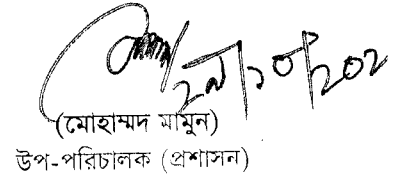 ২৯/১০/২০২
(মোহাম্মদ মামুন)
উপ-পরিচালক (প্রশাসন)